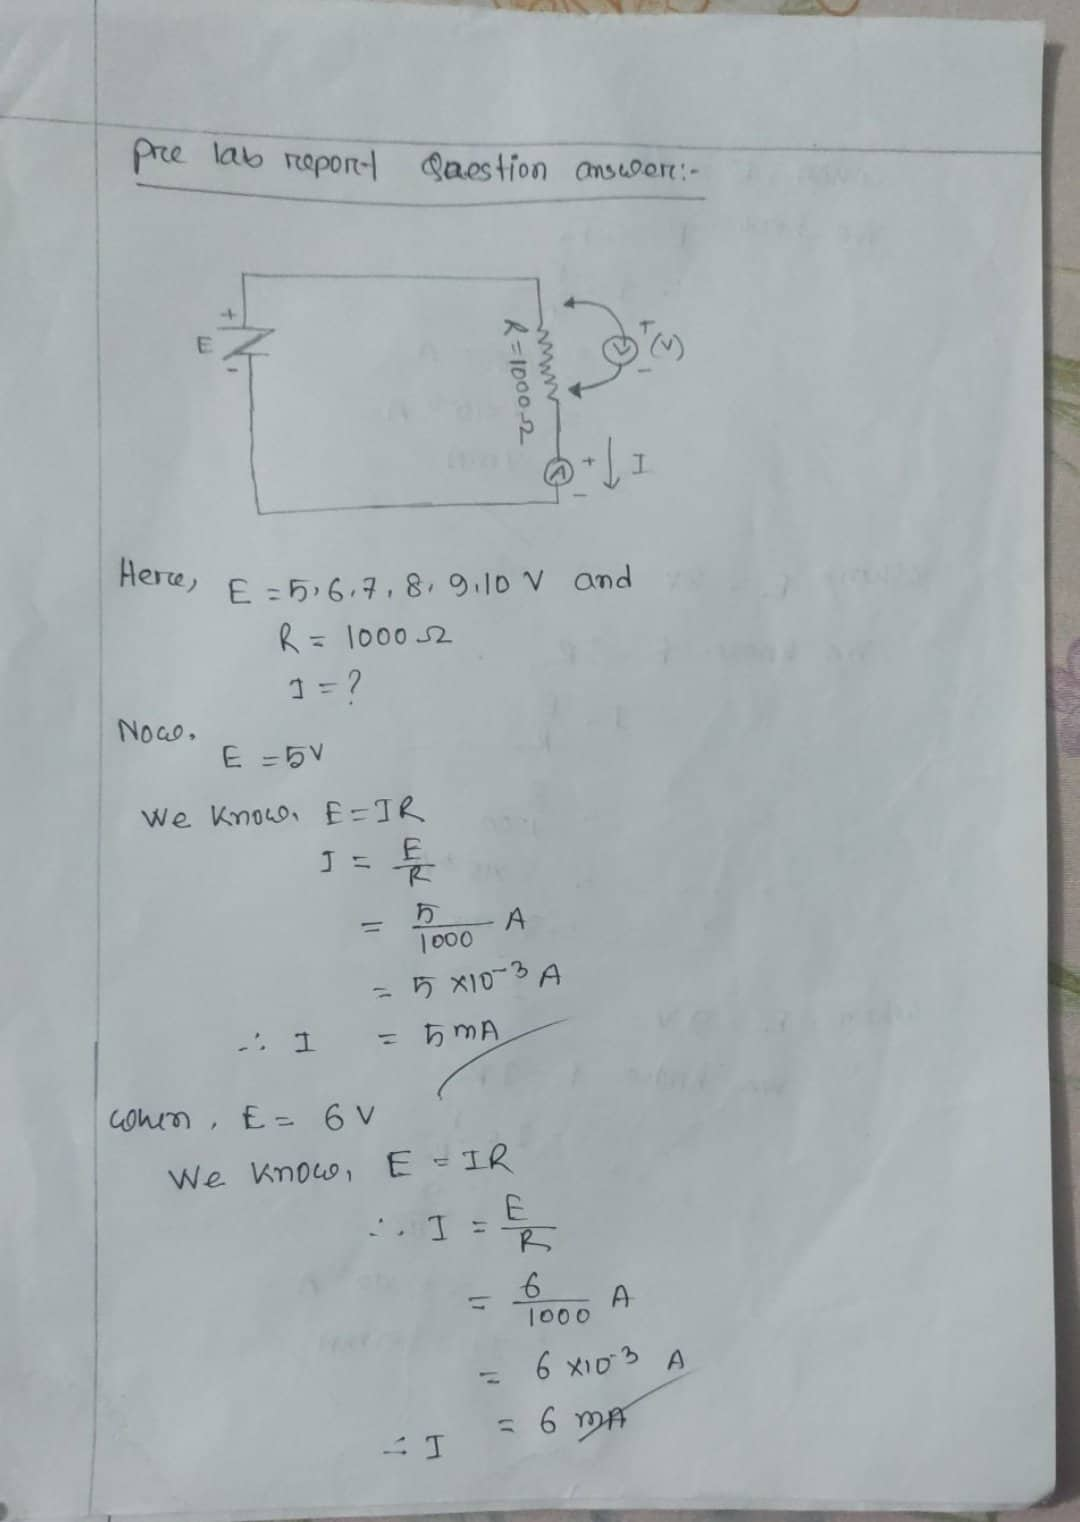 Pre lab report Question answer:-
+
E
-
R = 1000 Ω
V
+
(V)
-
A
+
-
I
Here, E = 5, 6, 7, 8, 9, 10 V and
R = 1000 Ω
I = ?
Now,
E = 5V
We know, E = IR
I = E/R
= 5/1000 A
= 5 ×10⁻³ A
∴ I = 5 mA
when, E = 6 V
We know, E = IR
∴ I = E/R
= 6/1000 A
= 6 ×10⁻³ A
∴ I = 6 mA